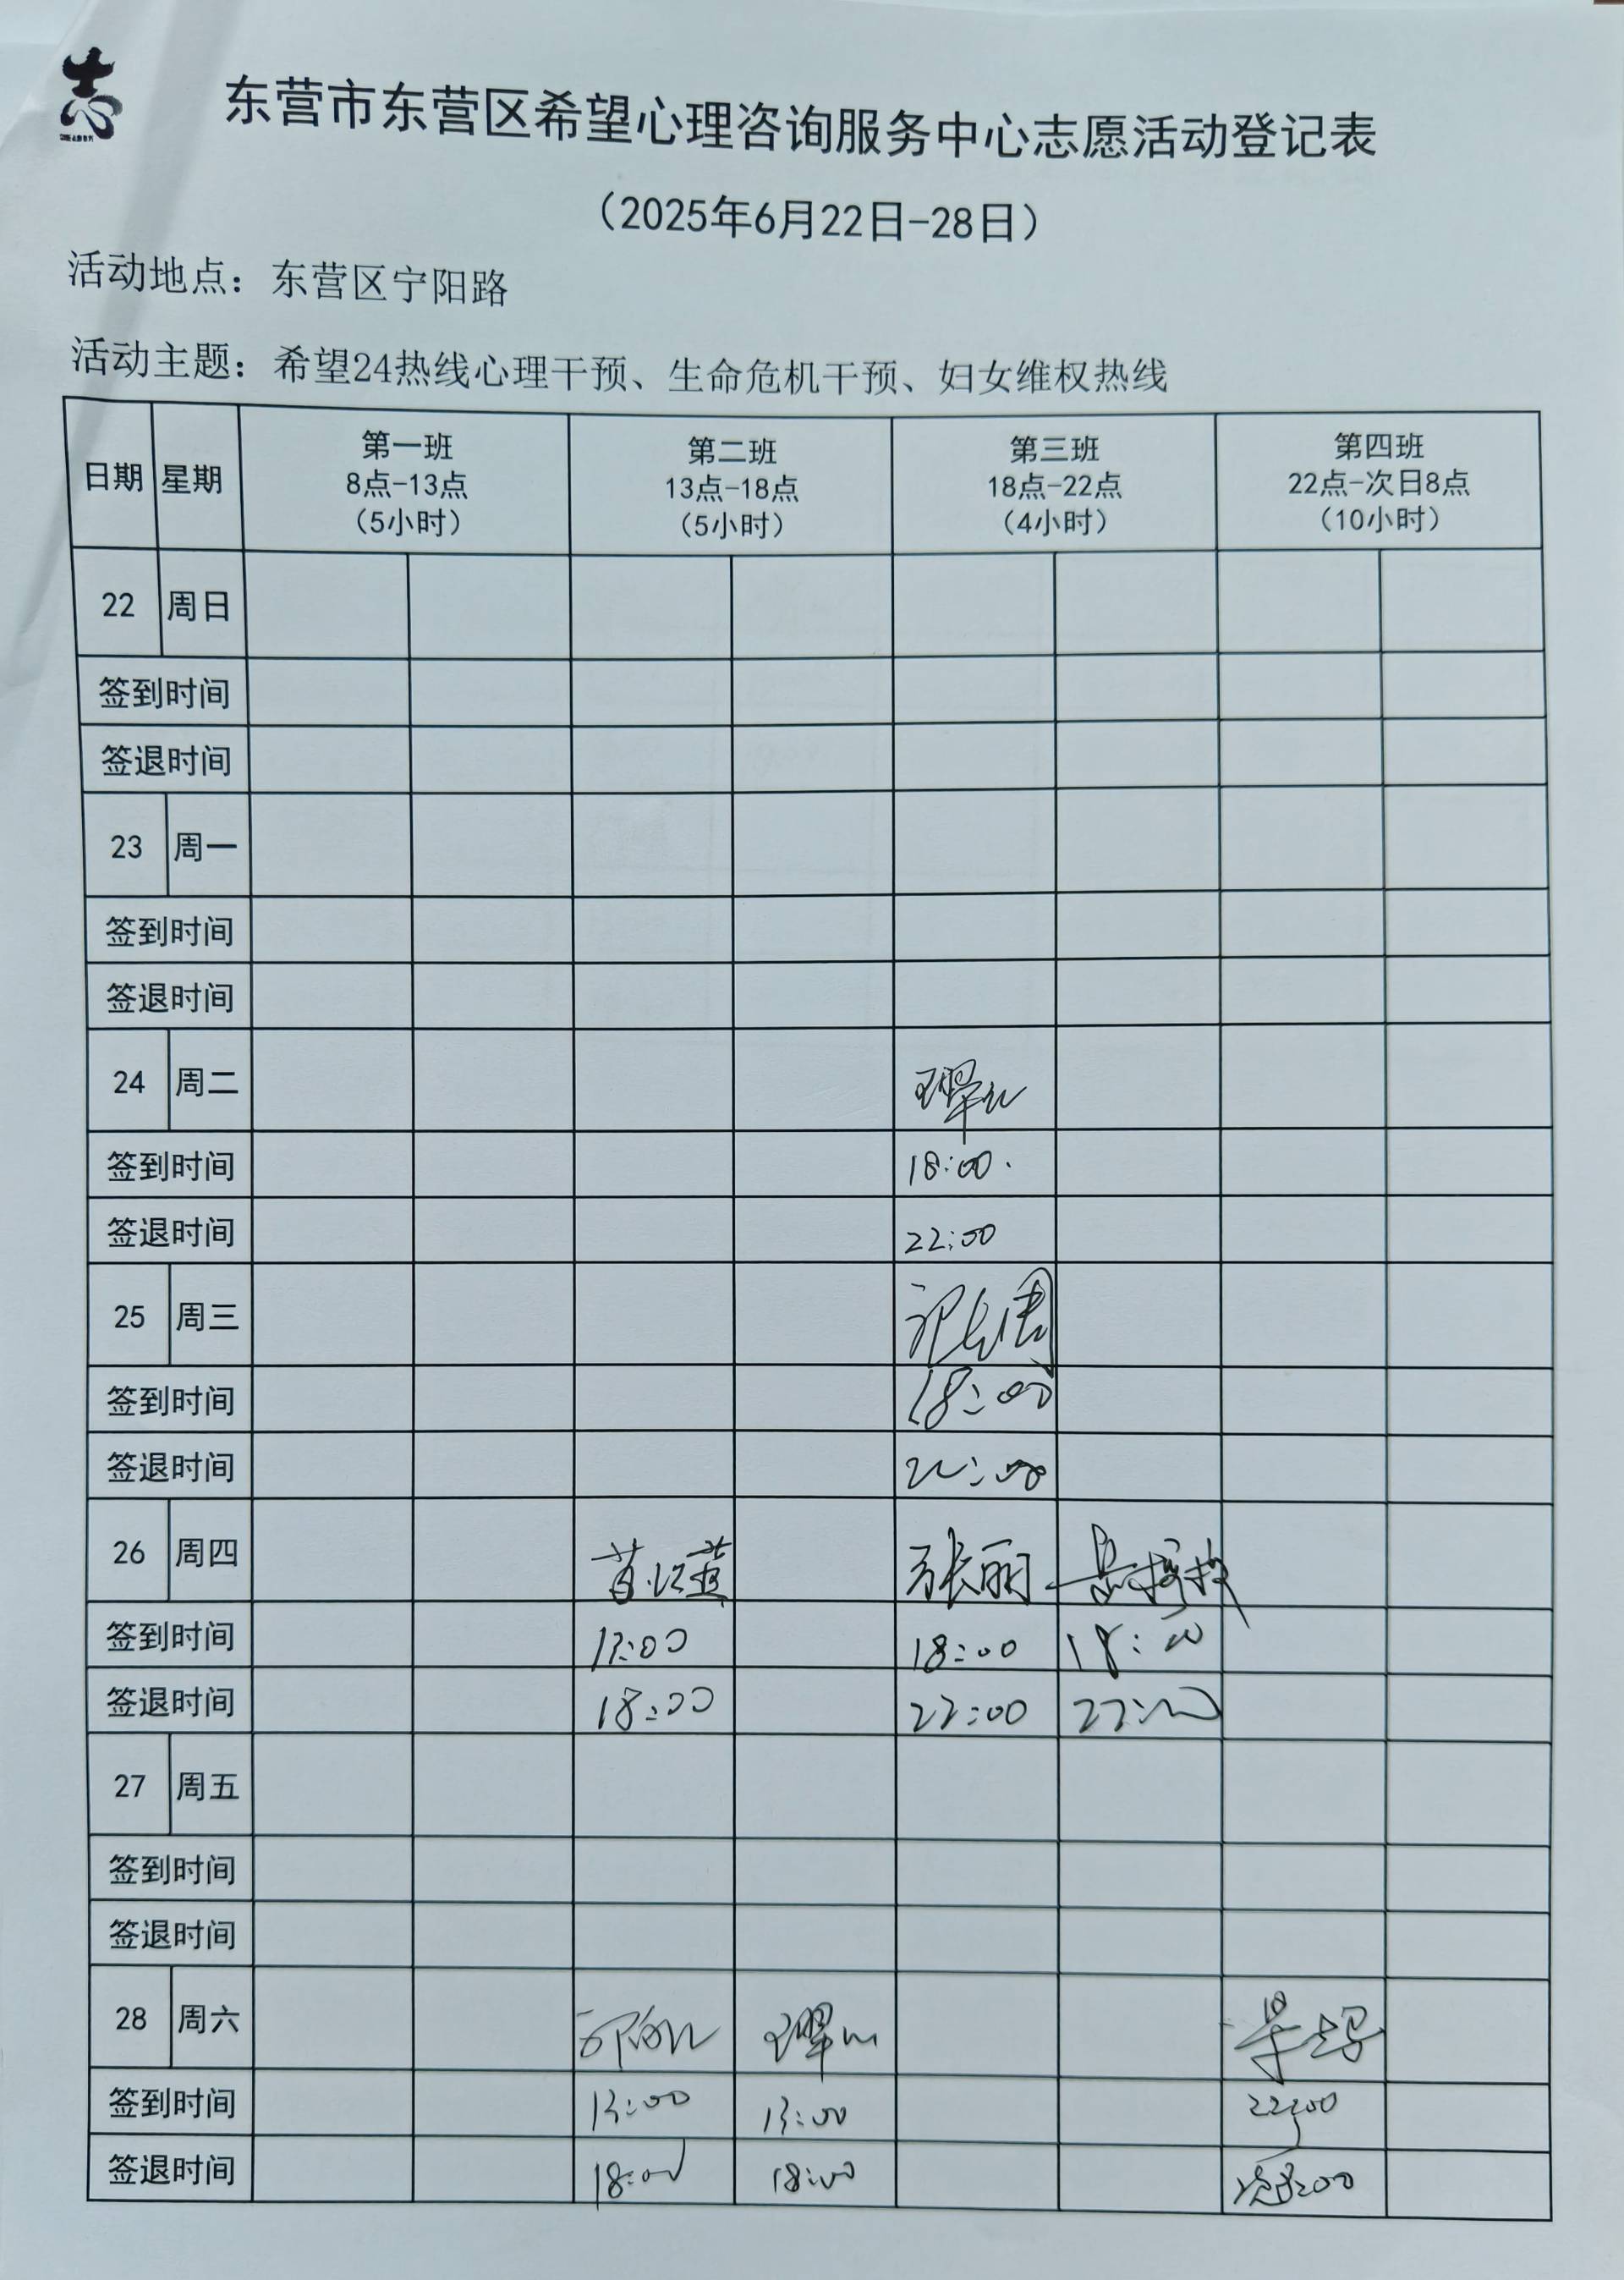 志
东营市东营区希望心理咨询服务中心志愿活动登记表
（2025年6月22日-28日）
活动地点：东营区宁阳路
活动主题：希望24热线心理干预、生命危机干预、妇女维权热线
日期 星期 第一班 8点-13点 （5小时） 第二班 13点-18点 （5小时） 第三班 18点-22点 （4小时） 第四班 22点-次日8点 （10小时）
22 周日
签到时间
签退时间
23 周一
签到时间
签退时间
24 周二
签到时间 18:00.
签退时间 22:00
25 周三
签到时间 18:00
签退时间 22:00
26 周四 张丽
签到时间 13:00 18:00 18:00
签退时间 18:00 22:00 22:00
27 周五
签到时间
签退时间
28 周六
签到时间 13:00 13:00 22:00
签退时间 18:00 18:00